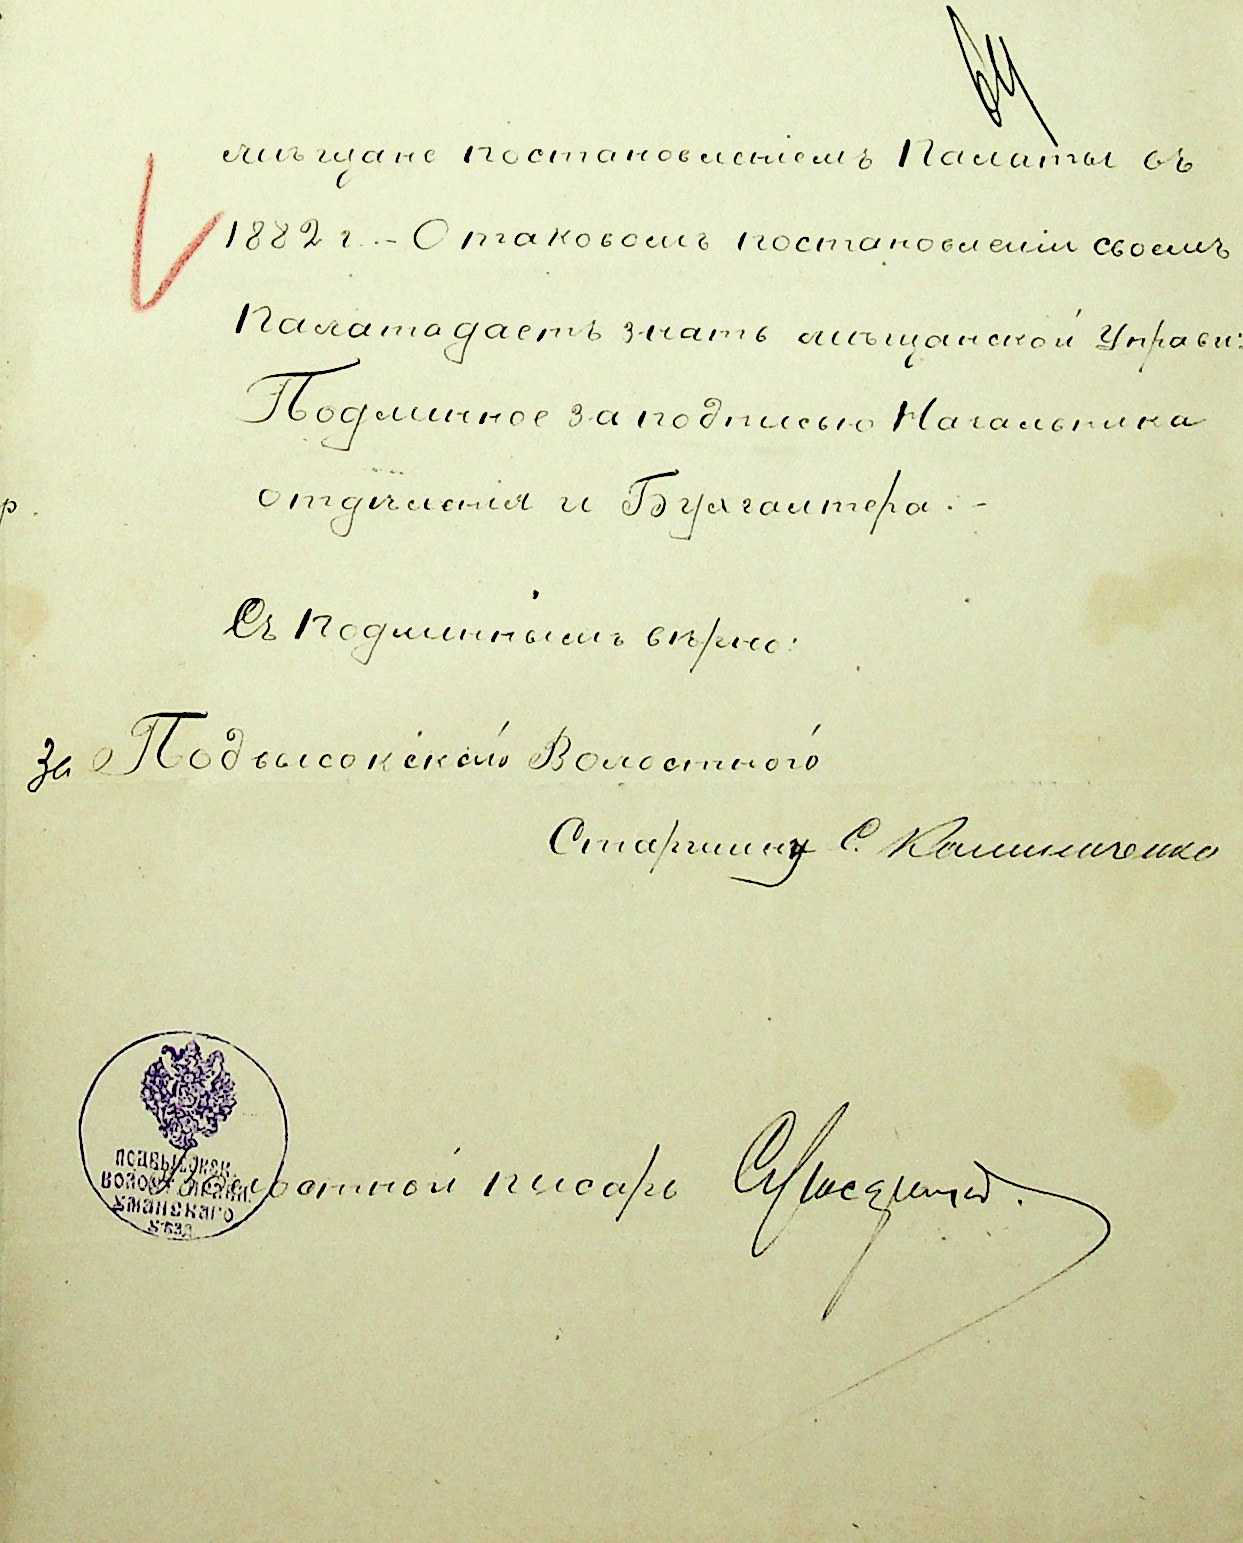 мѣщане постановленіемъ Палаты въ
1882 г. - О таковомъ постановленіи своемъ
Палата даетъ знать мѣщанской Управѣ:
Подлинное за подписью Начальника
отдѣленія и Бухгалтера. -
р.
Съ подлиннымъ вѣрно:
За Подвысокскаго Волостного
Старшину С. Калиниченко
Волостной писарь
ПОДВЫСОКСК.
ВОЛОСТ. ПРАВЛ.
УМАНСКАГО
УѢЗД.